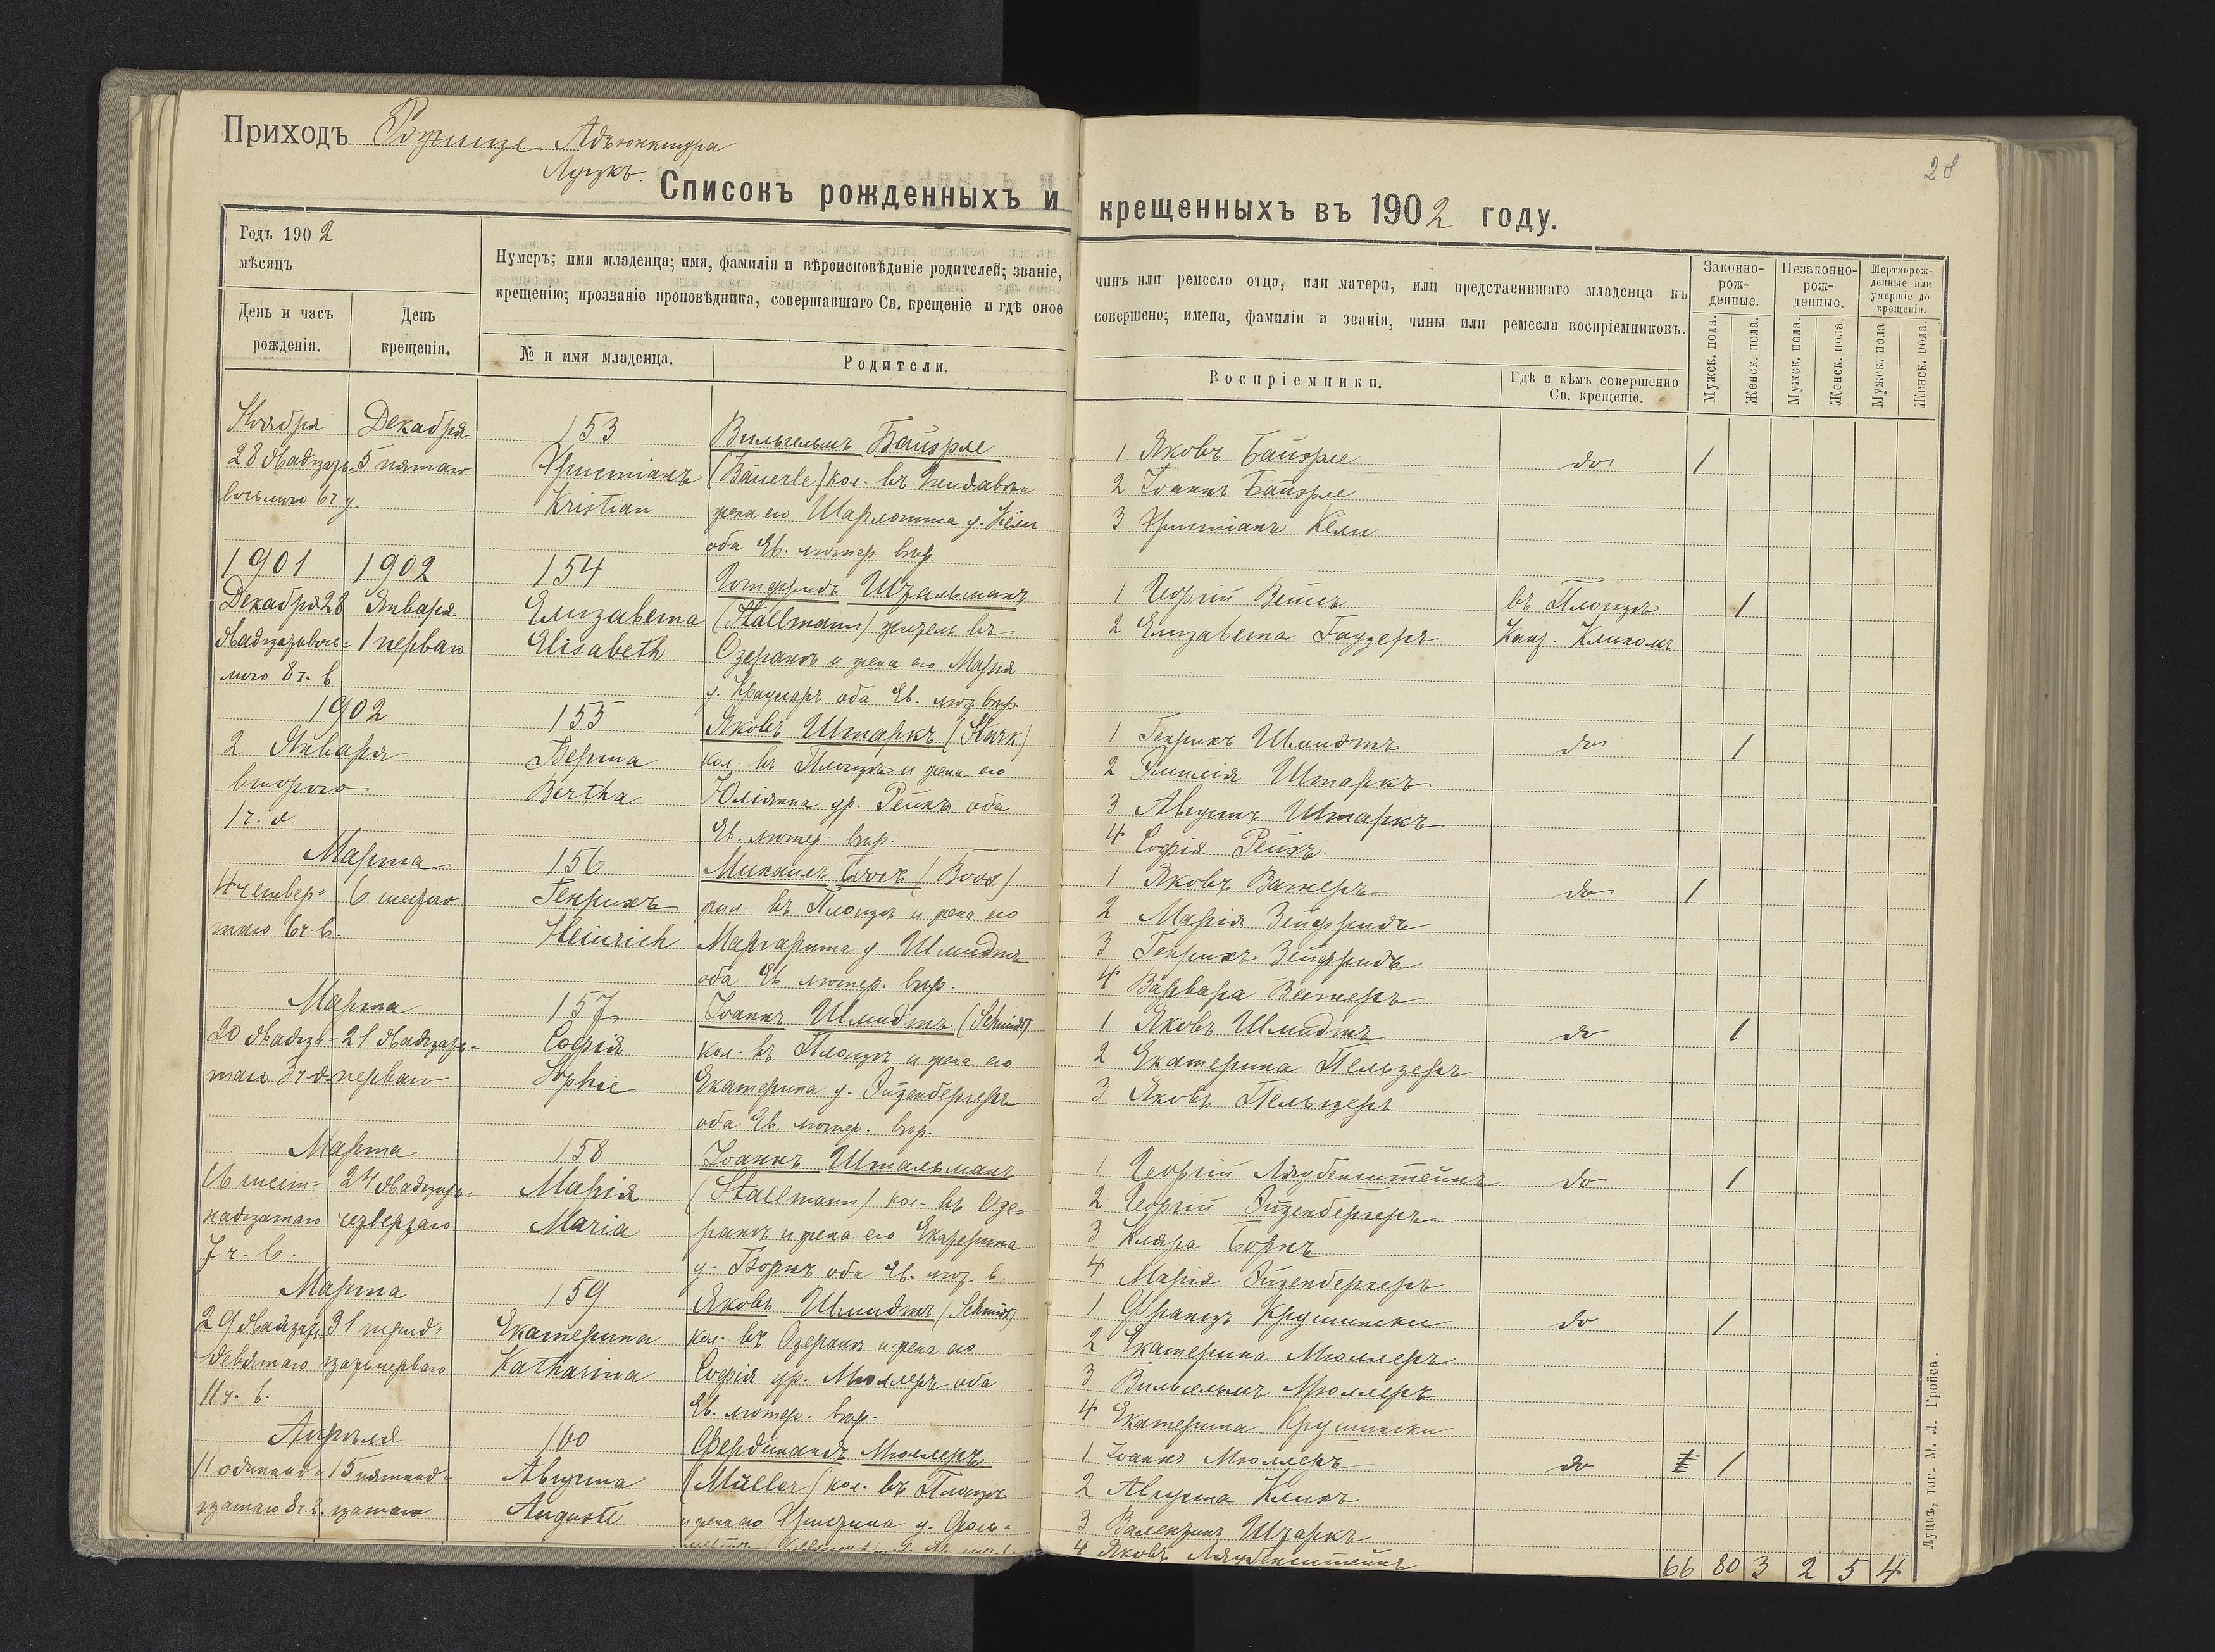 Приходъ Рожище Адъюнктура
Луцкъ.
28
Списокъ рожденныхъ и крещенныхъ въ 1902 году.
Годъ 1902
мѣсяцъ
День и часъ рожденія.
День крещенія.
Нумеръ; имя младенца; имя, фамилія и вѣроисповѣданіе родителей; званіе, чинъ или ремесло отца, или матери, или представившаго младенца къ
крещенію; прозваніе проповѣдника, совершавшаго Св. крещеніе и гдѣ оное совершено; имена, фамиліи и званія, чины или ремесла воспріемниковъ.
№ и имя младенца.
Родители.
Воспріемники.
Гдѣ и кѣмъ совершенно
Св. крещеніе.
Законно-
рож-
денные.
Незаконно-
рож-
денные.
Мертворож-
денные или
умершіе до
крещенія.
Мужск. пола.
Женск. пола.
Мужск. пола.
Женск. пола.
Мужск. пола
Женск. пола.
Ноября
28 двадцать
восьмого 6 ч. у.
Декабря
5 пятаго
153
Христіанъ
Kristian
Вильгельмъ Байэрле
(Bäuerle) кол. въ
жена его Шарлотта у. Кёли
оба Ев. лютер. вѣр.
1 Яковъ Байэрле
2 Іоаннъ Байэрле
3 Христіанъ Кёли
do
1
1901
Декабря 28
двадцатьвось=
мого 8 ч. в
1902
Января
1 перваго
154
Елизавета
Elisabeth
Готфридъ Штальманъ
(Stallmann) жител въ
Озеранѣ и жена его Марія
у. оба Ев. лют. вѣр.
1 Георгій
2 Елизавета Гаузеръ
въ Площѣ
Канд. Кликомъ
1
1902
2 Января
второго
1 ч. д.
155
Берта
Bertha
Яковъ Штаркъ (Stark)
кол. въ Площѣ и жена его
Юліянна ур. Рейхъ оба
Ев. лютер. вѣр.
1 Генрихъ Шмидтъ
2 Эмилія Штаркъ
3 Августъ Штаркъ
4 Софія Рейхъ.
do
1
Марта
4 четвер=
таго 6 ч. в.
6 шестаго
156
Генрихъ
Heinrich
Михаилъ Боосъ (Boos)
въ Площѣ и жена его
Маргарита у. Шмидтъ
оба Ев. лютер. вѣр.
1 Яковъ Вагнеръ
2 Марія Зейфридъ
3 Генрихъ Зейфридъ
4 Варвара Вагнеръ
do
1
Марта
20 двадца=
таго 3 ч. д.
21 двадцать=
перваго
157
Софія
Sophie
Іоаннъ Шмидтъ (Schmidt)
кол. въ Площѣ и жена его
Екатерина у. Эйзенбергеръ
оба Ев. лютер. вѣр.
1 Яковъ Шмидтъ
2 Екатерина Пельцеръ
3 Яковъ Пельцеръ
do
1
Марта
16 шест=
надцатаго
7 ч. в.
24 двадцать=
четвертаго
158
Марія
Maria
Іоаннъ Штальманъ
(Stallmann) кол. въ Озе=
ранѣ и жена его Екатерина
у. Борнъ оба Ев. лют. в.
1 Георгій Ляубенштейнъ
2 Георгій Эйзенбергеръ
3 Клара Борнъ
4 Марія Эйзенбергеръ
do
1
Марта
29 двадцать
девятаго
11 ч. в.
31 трид=
цатьперваго
159
Екатерина
Katharina
Яковъ Шмидтъ (Schmidt)
кол. въ Озеранѣ и жена его
Софія ур. Мюллеръ оба
Ев. лютер. вѣр.
1 Францъ Крушински
2 Екатерина Мюллеръ
3 Вильгельмъ Мюллеръ
4 Екатерина Крушински
do
1
Апрѣля
11 одиннад=
цатаго 8 ч.
15 пятнад=
цатаго
160
Августа
Auguste
Фердинандъ Мюллеръ
(Müller) кол. въ Площѣ
и жена его Христина у.
1 Іоаннъ Мюллеръ
2 Августа Кликъ
3 Валентинъ Штаркъ
4 Яковъ Ляубенштейнъ
do
1
66 80 3 2 5 4
Луцкъ, тип. М. Л. Гройса.